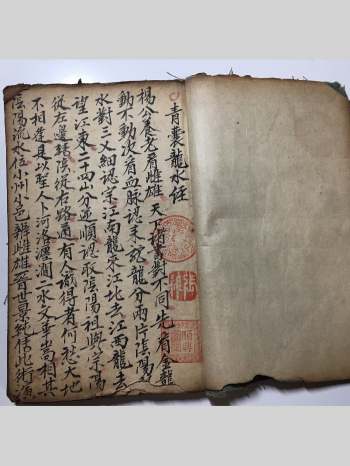 青囊龍水經
楊公養老看雌雄 天下諸書對不同 先看金龍
動不動次看血脉認來蛇龍分兩片陰陽
水對三叉細認宗江南龍來江北去江西龍去
望江東二十四山分逆順認取陰陽祖與宗陽
從左邊轉陰從右路通有人識得者何愁大地
不相逢是以聖人河洛瀍澗二水交華嵩相其
陰陽流水位小州小邑辨雌雄晉世景純傳此術演